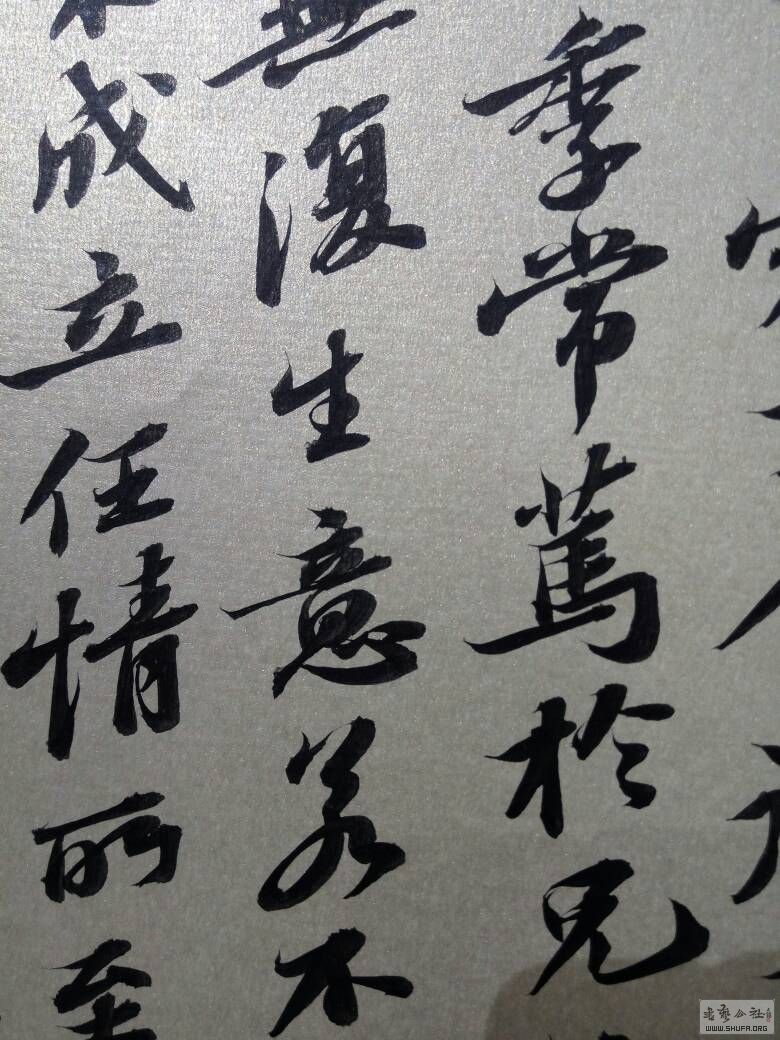 季常篤於兄
無復生意若不
成立任情所至
書藝公社
WWW.SHUFA.ORG